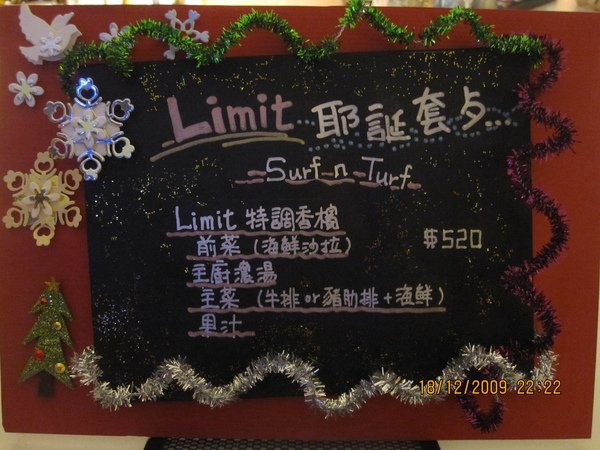 Limit 耶誕套夕..
Surf n Turf
Limit 特調香檳
前菜 (海鮮沙拉)
$520
主廚濃湯
主菜 (牛排or豬肋排+海鮮)
果汁
18/12/2009 22:22